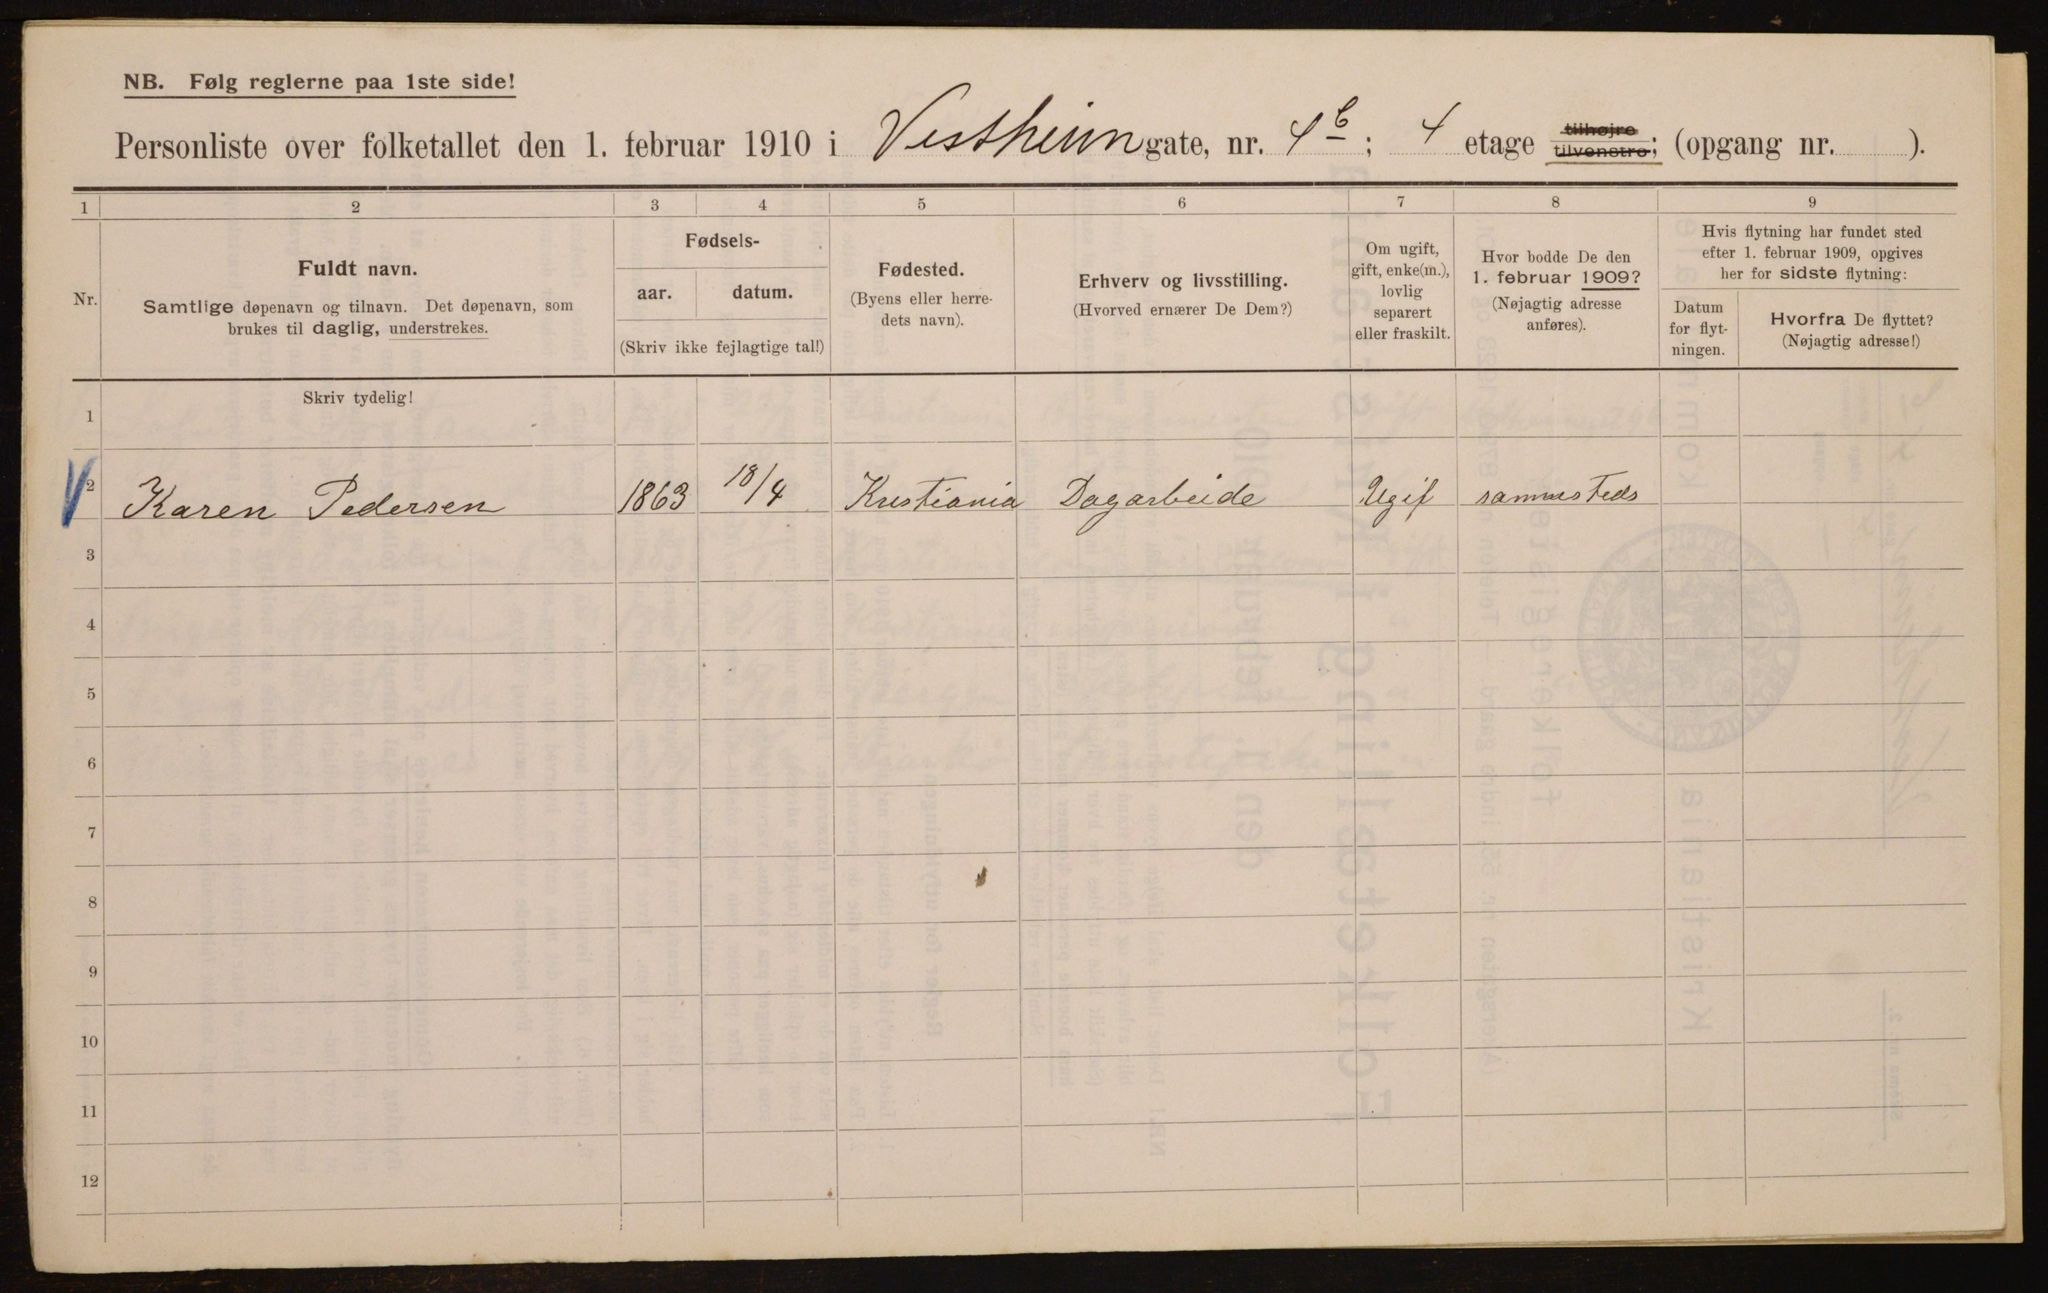 NB. Følg reglerne paa 1ste side!
Personliste over folketallet den 1. februar 1910 i Vestheim gate, nr. 4b; 4 etage tilhøjre tilvenstre; (opgang nr. ).
1 2 3 4 5 6 7 8 9
Nr.
Fuldt navn.
Samtlige døpenavn og tilnavn. Det døpenavn, som
brukes til daglig, understrekes.
Fødsels-
aar. datum.
(Skriv ikke fejlagtige tal!)
Fødested.
(Byens eller herre-
dets navn).
Erhverv og livsstilling.
(Hvorved ernærer De Dem?)
Om ugift,
gift, enke(m.),
lovlig
separert
eller fraskilt.
Hvor bodde De den
1. februar 1909?
(Nøjagtig adresse
anføres).
Hvis flytning har fundet sted
efter 1. februar 1909, opgives
her for sidste flytning:
Datum
for flyt-
ningen.
Hvorfra De flyttet?
(Nøjagtig adresse!)
Skriv tydelig!
1
2 Karen Pedersen 1863 18/4 Kristiania Dagarbeide Ugif sammesteds
3
4
5
6
7
8
9
10
11
12